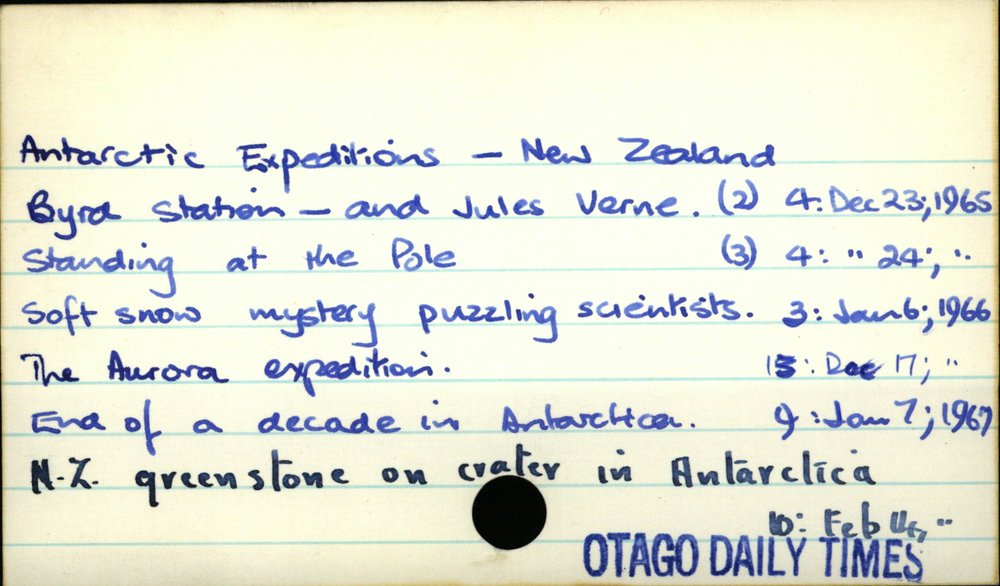 Antarctic Expeditions — New Zealand
Byrd Station — and Jules Verne. (2) 4: Dec 23; 1965
Standing at the Pole (3) 4: " 24; "
Soft snow mystery puzzling scientists. 3: Jan 6; 1966
The Aurora expedition. 15: Dec 17; "
End of a decade in Antarctica. 9: Jan 7; 1967
N.Z. greenstone on crater in Antarctica
10: Feb 4, "
OTAGO DAILY TIMES